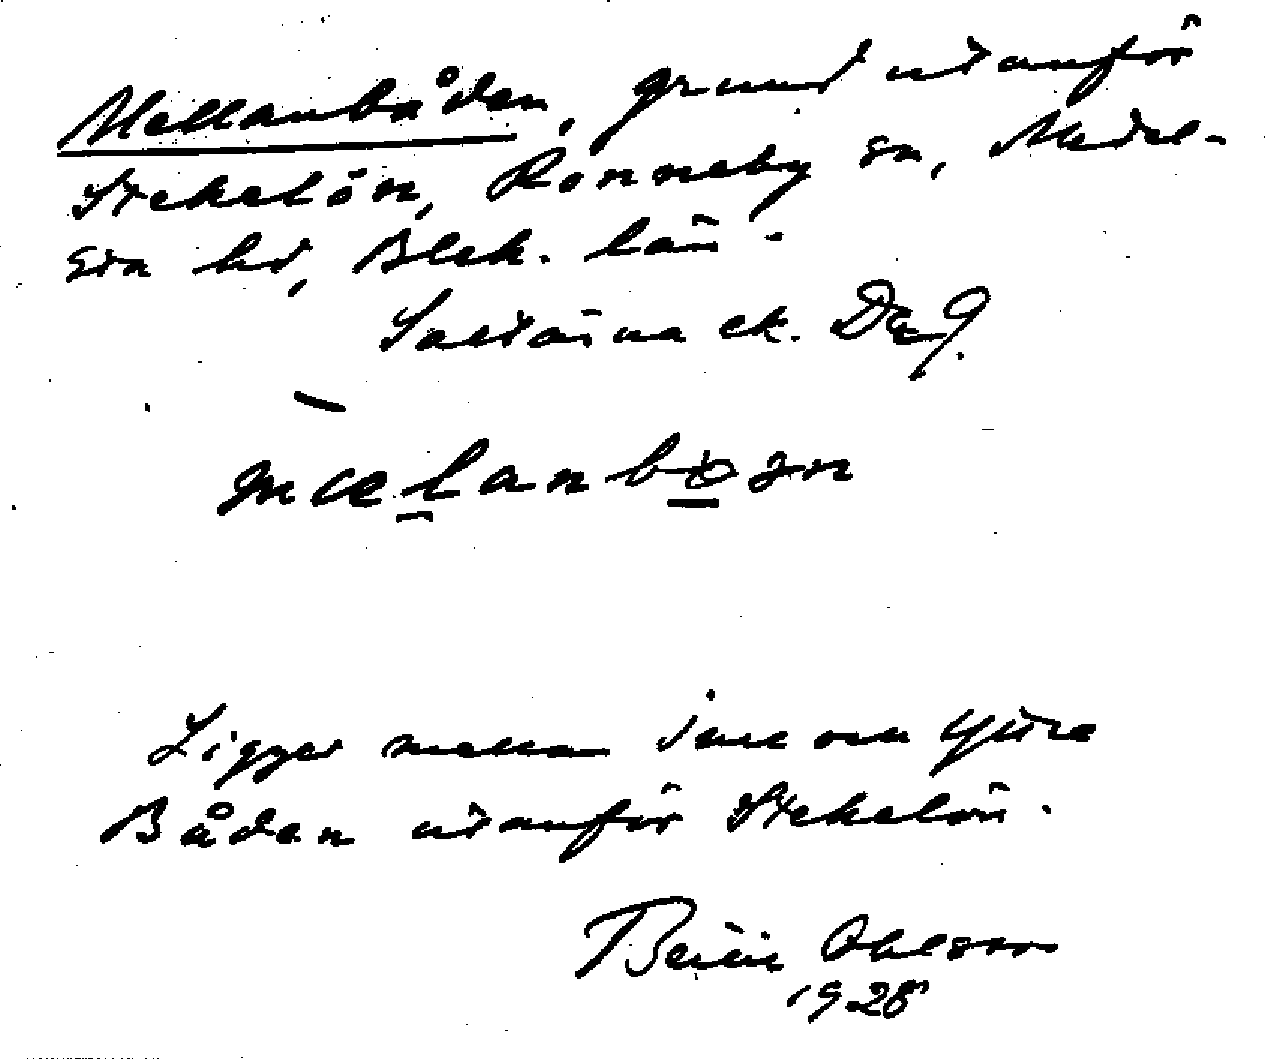 Mellanbåden, grund utanför
Stekelön, Ronneby sn, Medel-
sta hd, Blek. län.
ek.
Ligger mellan inre och yttre
Båden utanför Stekelön.
Bertil Ohlsson
1928